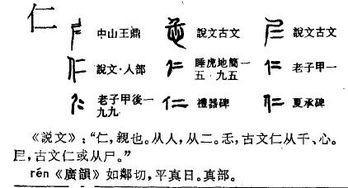 仁
中山王鼎 說文古文 說文古文
說文·人部 睡虎地簡一五·九五 老子甲一
老子甲後一九九 禮器碑 夏承碑
《説文》:“仁,親也。从人,从二。忎,古文仁从千、心。
𡰥,古文仁或从尸。”
rén《廣韻》如鄰切,平真日。真部。